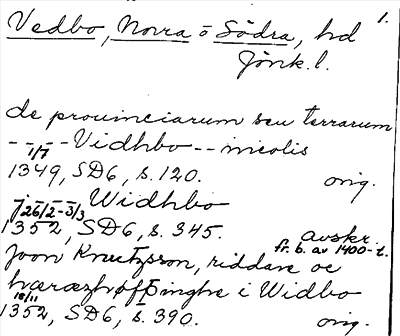 1.
Vedbo, Norra o Södra, hd
Jönk. l.
de prouinciarum seu terrarum
- - - Vidhbo - - incolis
1/7
1349, SD6, s. 120. orig.
j Widhbo
26/2-3/3
1352, SD6, s. 345. avskr.
fr. b. av 1400-t.
Joon Knutzson, riddare oc
hæræzhøffdinghe i Widbo
18/11
1352, SD6, s. 390. orig.